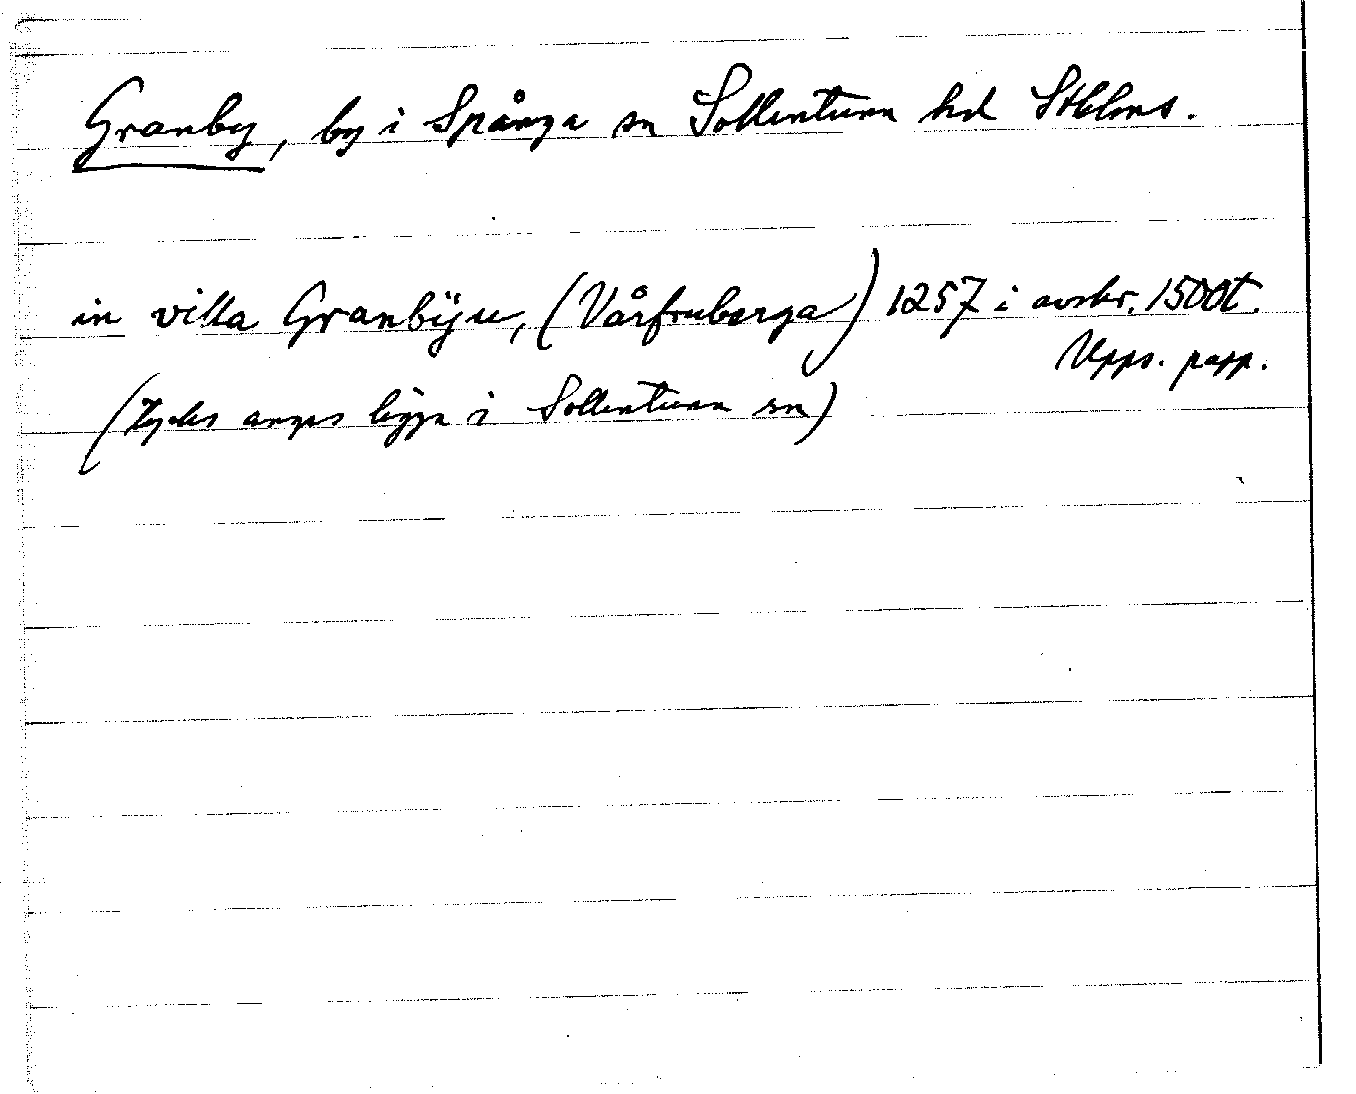 Granby, by i Spånga sn Sollentuna hd Sthlms.
in villa Granbÿu, (Vårfruberga) 1257 i avskr. 1500t.
Upps. papp.
(Tycks anges ligga i Sollentuna sn)